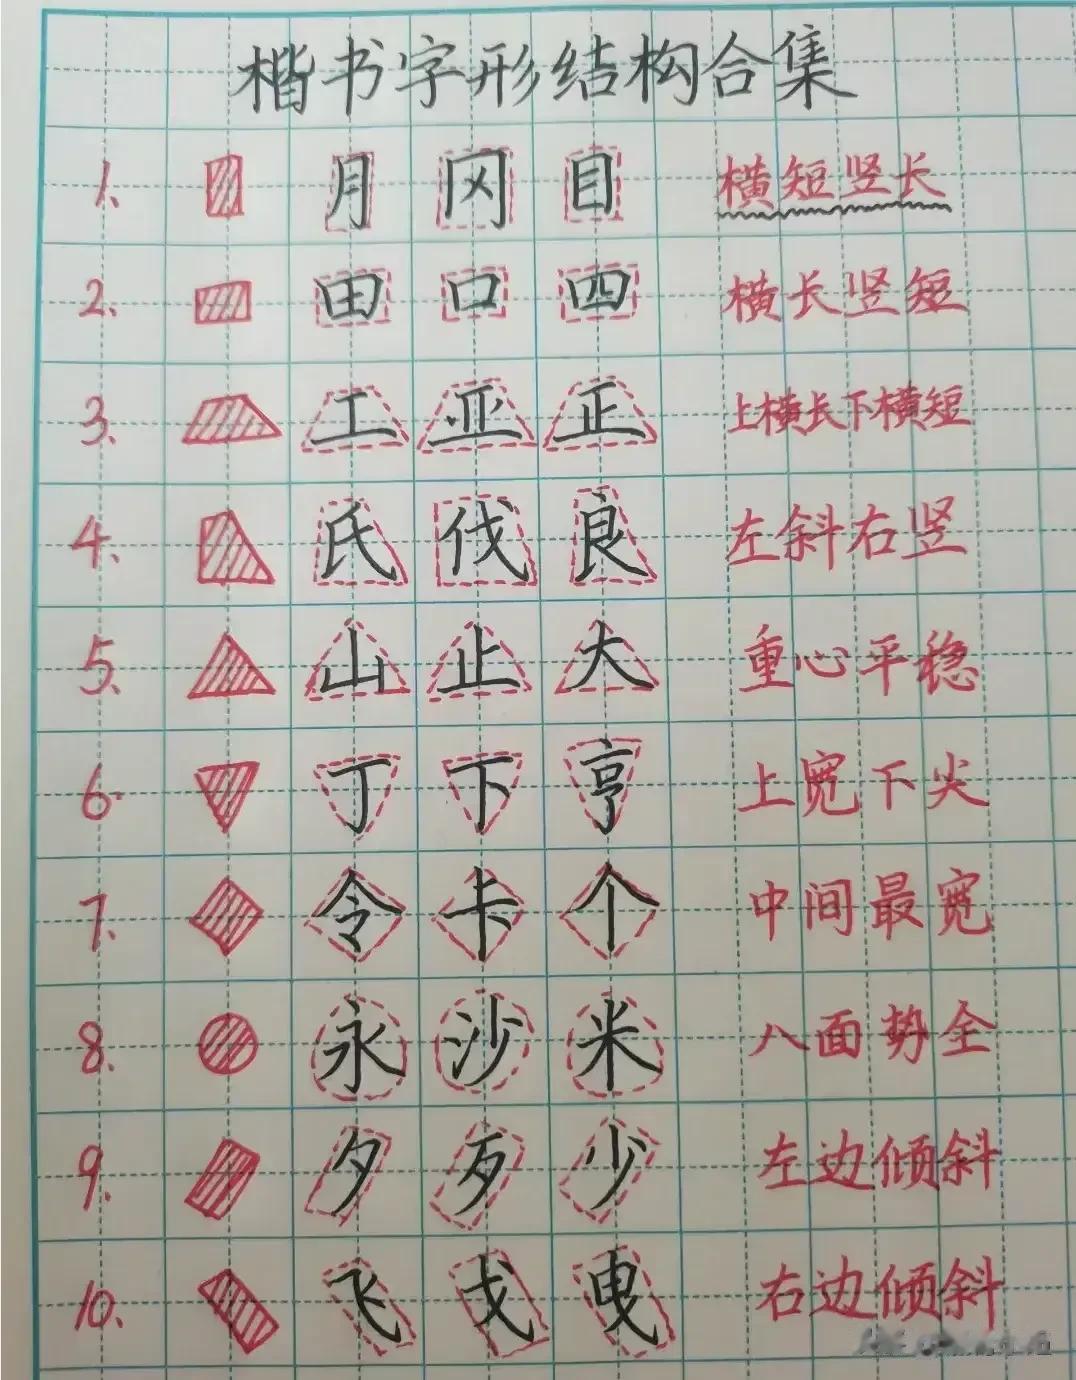 楷书字形结构合集
1. 月 冈 目 横短竖长
2. 田 口 四 横长竖短
3. 工 亚 正 上横长下横短
4. 氏 伐 良 左斜右竖
5. 山 止 大 重心平稳
6. 丁 下 亨 上宽下尖
7. 令 卡 个 中间最宽
8. 永 沙 米 八面势全
9. 夕 歹 少 左边倾斜
10. 飞 戈 曳 右边倾斜